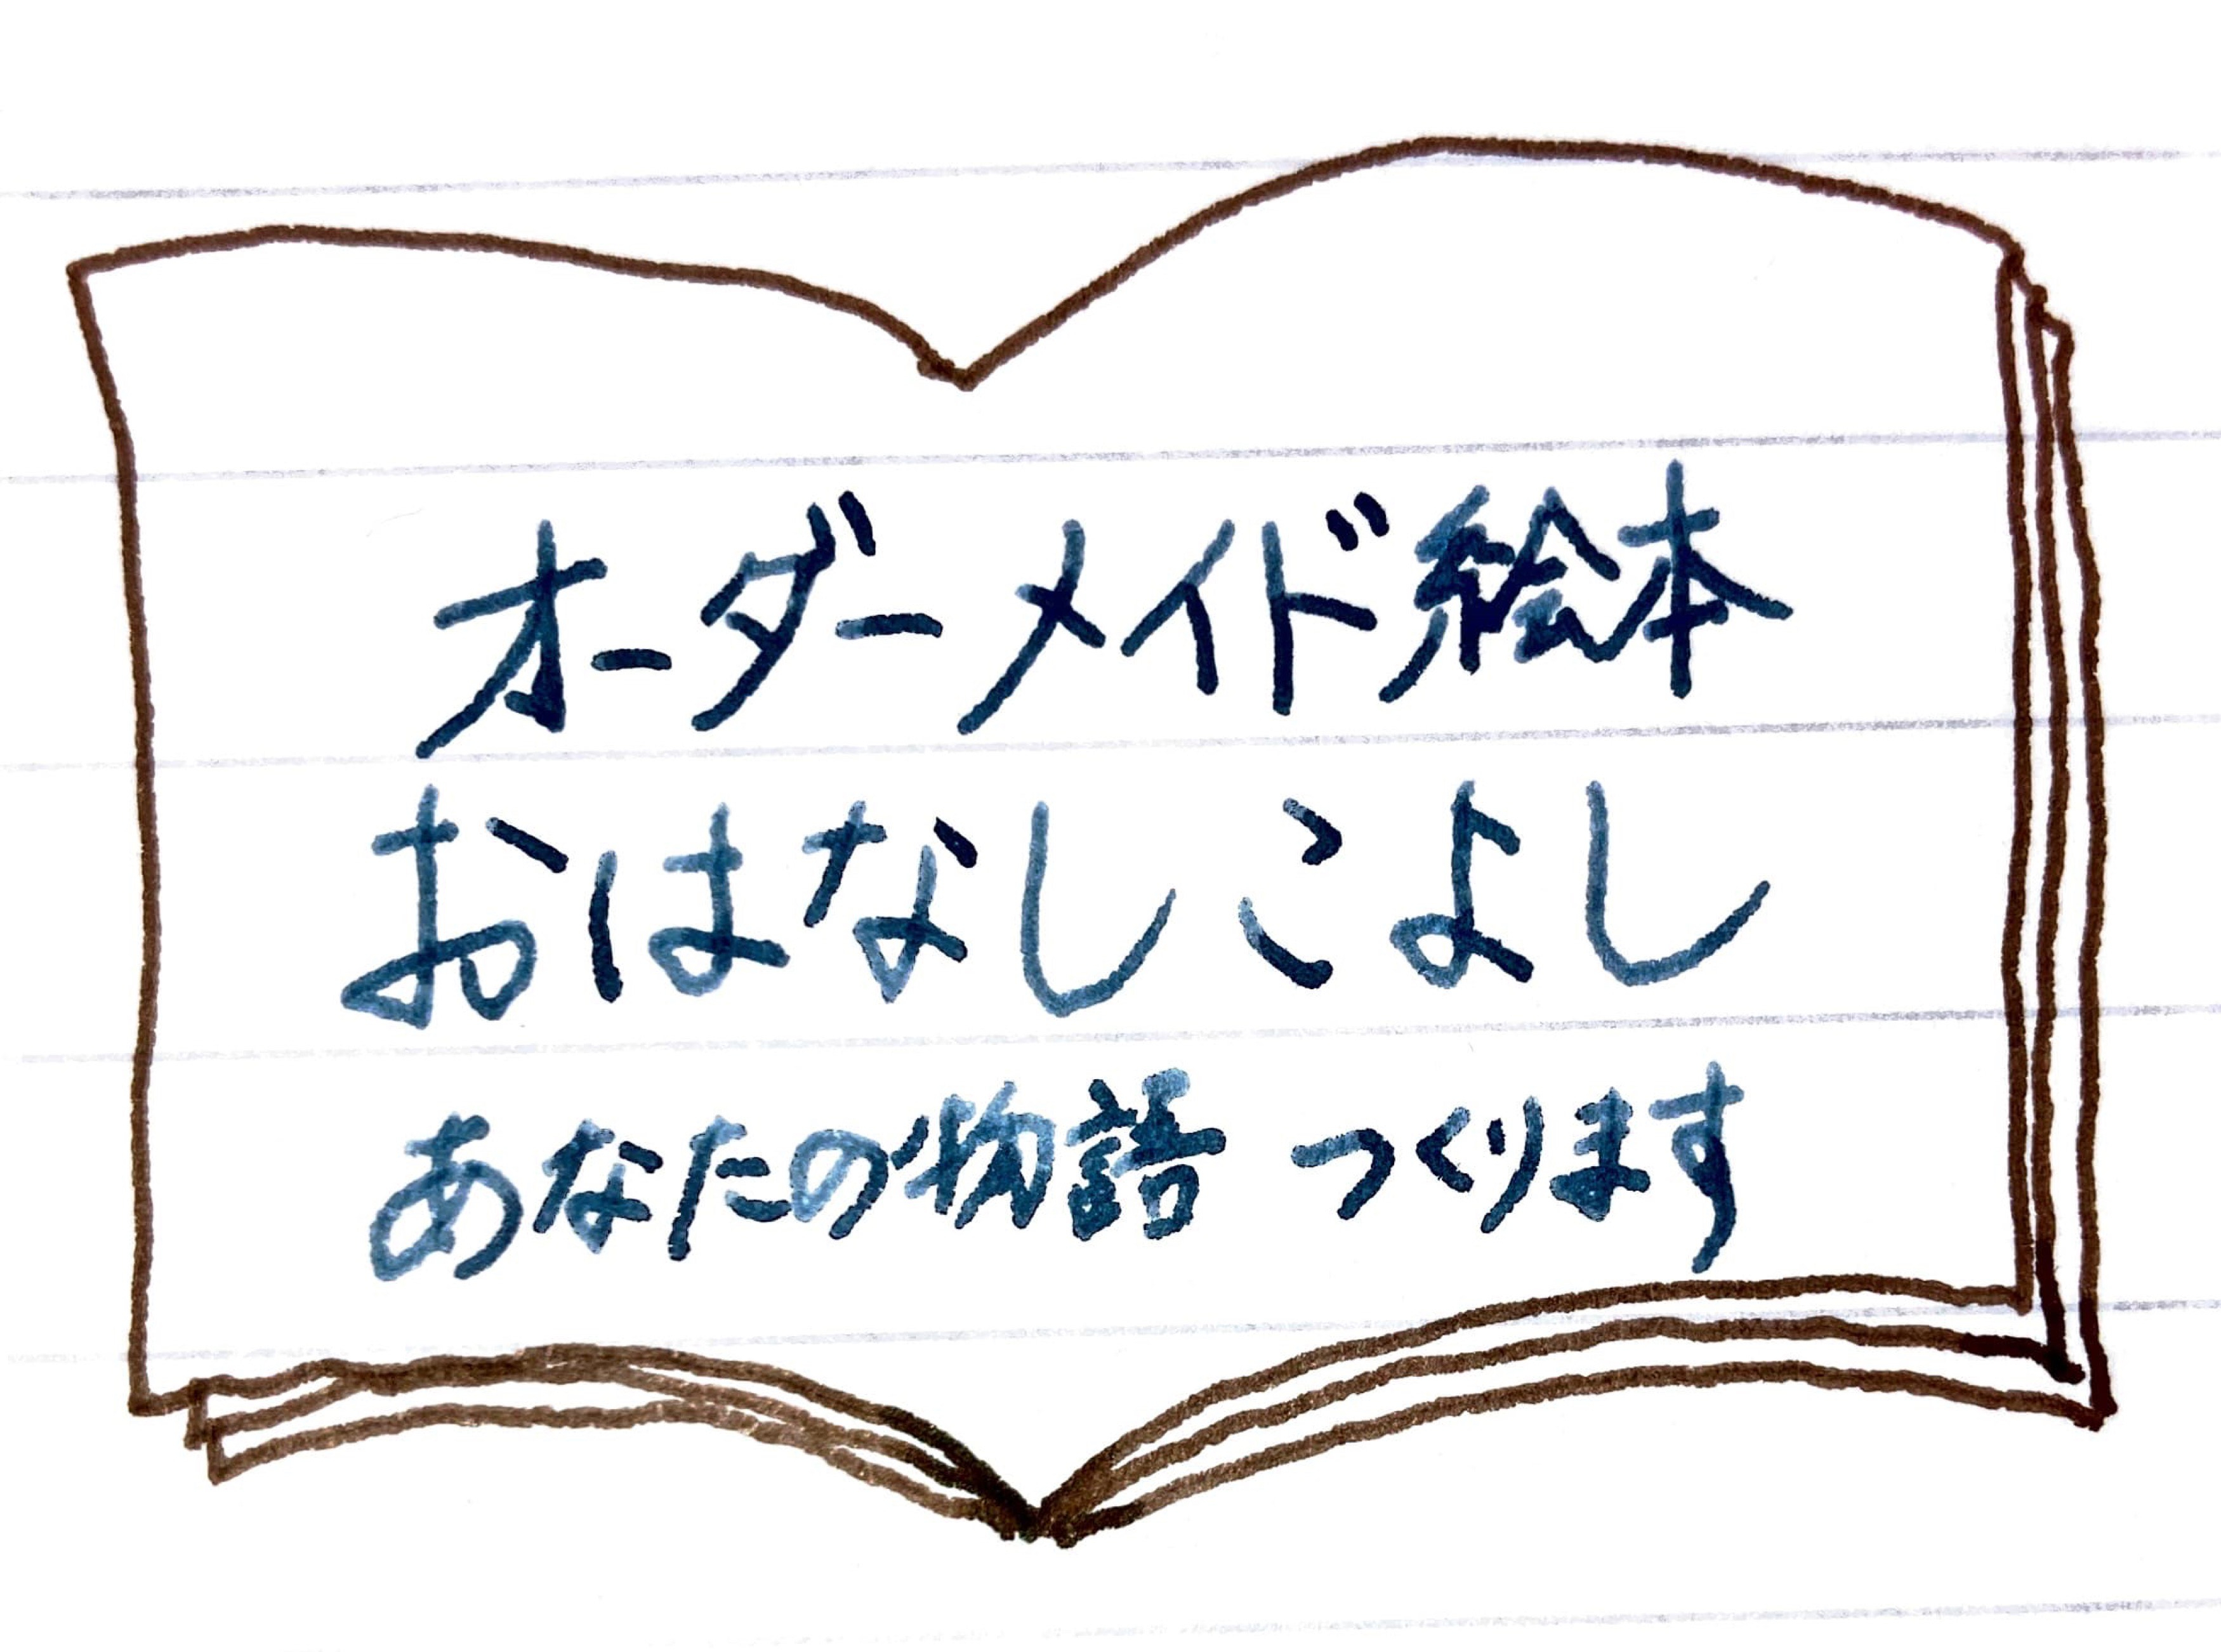 オーダーメイド絵本
おはなしこよし
あなたの物語 つくります